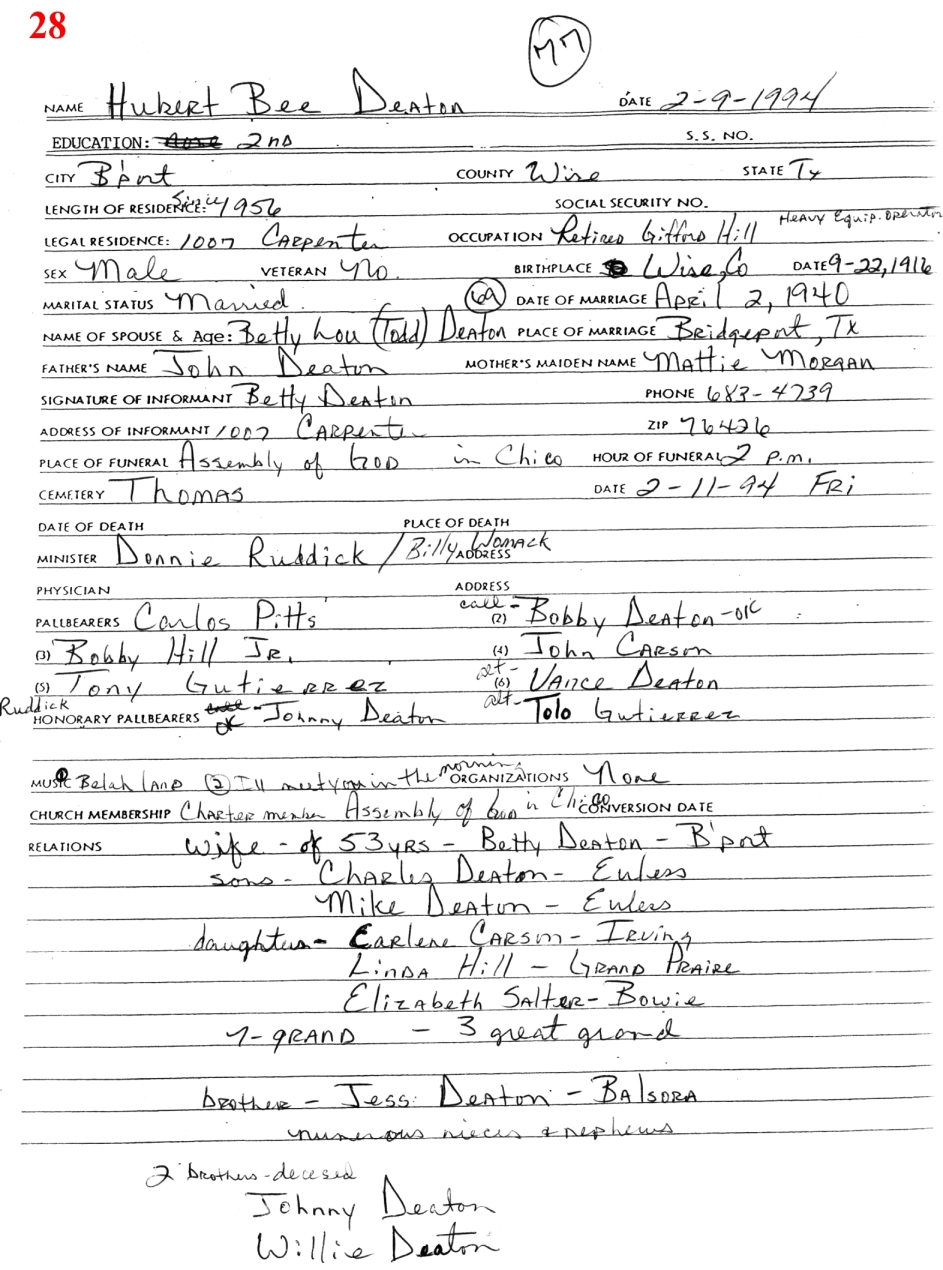 28
77
NAME Hubert Bee Deaton DATE 2-9-1994
EDUCATION: 2nd S.S. NO.
CITY B'port COUNTY Wise STATE Tx
LENGTH OF RESIDENCE: Since 1956 SOCIAL SECURITY NO.
Heavy Equip. Operator
LEGAL RESIDENCE: 1007 Carpenter OCCUPATION Retired Gifford Hill
SEX Male VETERAN No. BIRTHPLACE Wise, Co DATE 9-22, 1916
MARITAL STATUS Married. 69 DATE OF MARRIAGE April 2, 1940
NAME OF SPOUSE & Age: Betty Lou (Todd) Deaton PLACE OF MARRIAGE Bridgeport, Tx
FATHER'S NAME John Deaton MOTHER'S MAIDEN NAME Mattie Morgan
SIGNATURE OF INFORMANT Betty Deaton PHONE 683-4739
ADDRESS OF INFORMANT 1007 Carpenter ZIP 76426
PLACE OF FUNERAL Assembly of God in Chico HOUR OF FUNERAL 2 p.m.
CEMETERY Thomas DATE 2-11-94 Fri
DATE OF DEATH PLACE OF DEATH
MINISTER Donnie Ruddick / Billy Womack ADDRESS
PHYSICIAN ADDRESS
PALLBEARERS Carlos Pitts call - (2) Bobby Deaton - OK
(3) Bobby Hill Jr. (4) John Carson
(5) Tony Gutierrez alt- (6) Vance Deaton
Ruddick
HONORARY PALLBEARERS OK - Johnny Deaton alt- Tolo Gutierrez
MUSIC Belah land (2) I'll meet you in the morning ORGANIZATIONS None
CHURCH MEMBERSHIP Charter member Assembly of God in Chico CONVERSION DATE
RELATIONS wife - of 53 yrs - Betty Deaton - B'port
sons - Charles Deaton - Euless
Mike Deaton - Euless
daughters - Earlene Carson - Irving
Linda Hill - Grand Praire
Elizabeth Salter - Bowie
7 - grand - 3 great grand
brother - Jess Deaton - Balsora
numerous nieces & nephews
2 brothers - decesed
Johnny Deaton
Willie Deaton